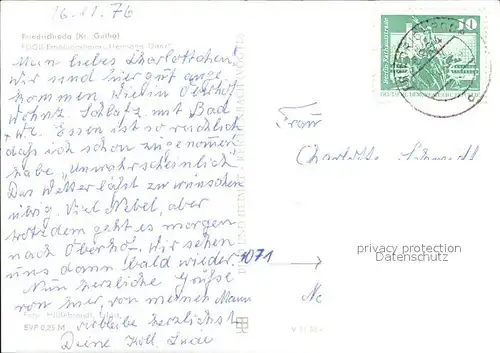 16.11.76
Friedrichroda (Kr. Gotha)
FDGB-Erholungsheim „Hermann Danz"
Mein liebes Charlottchen!
Wir sind hier gut ange-
kommen. Wie in Oberhof
Wohnz. Schlafz. mit Bad
+ W.C. Essen ist so reichlich
daß ich schon zugenommen
habe „Unwahrscheinlich"
Das Wetter läßt zu wünschen
übrig. Viel Nebel, aber
trotzdem geht es morgen
nach Oberhof. Wir sehen
uns dann bald wieder.
Nun herzliche Grüße
von hier, von meinem Mann
verbleibe herzlichst
Deine Koll.
Foto: Hildebrandt, Erfurt
EVP 0,25 M
10
Berlin Rathausstraße
DDR
Frau
Charlotte
1071
privacy protection
Datenschutz